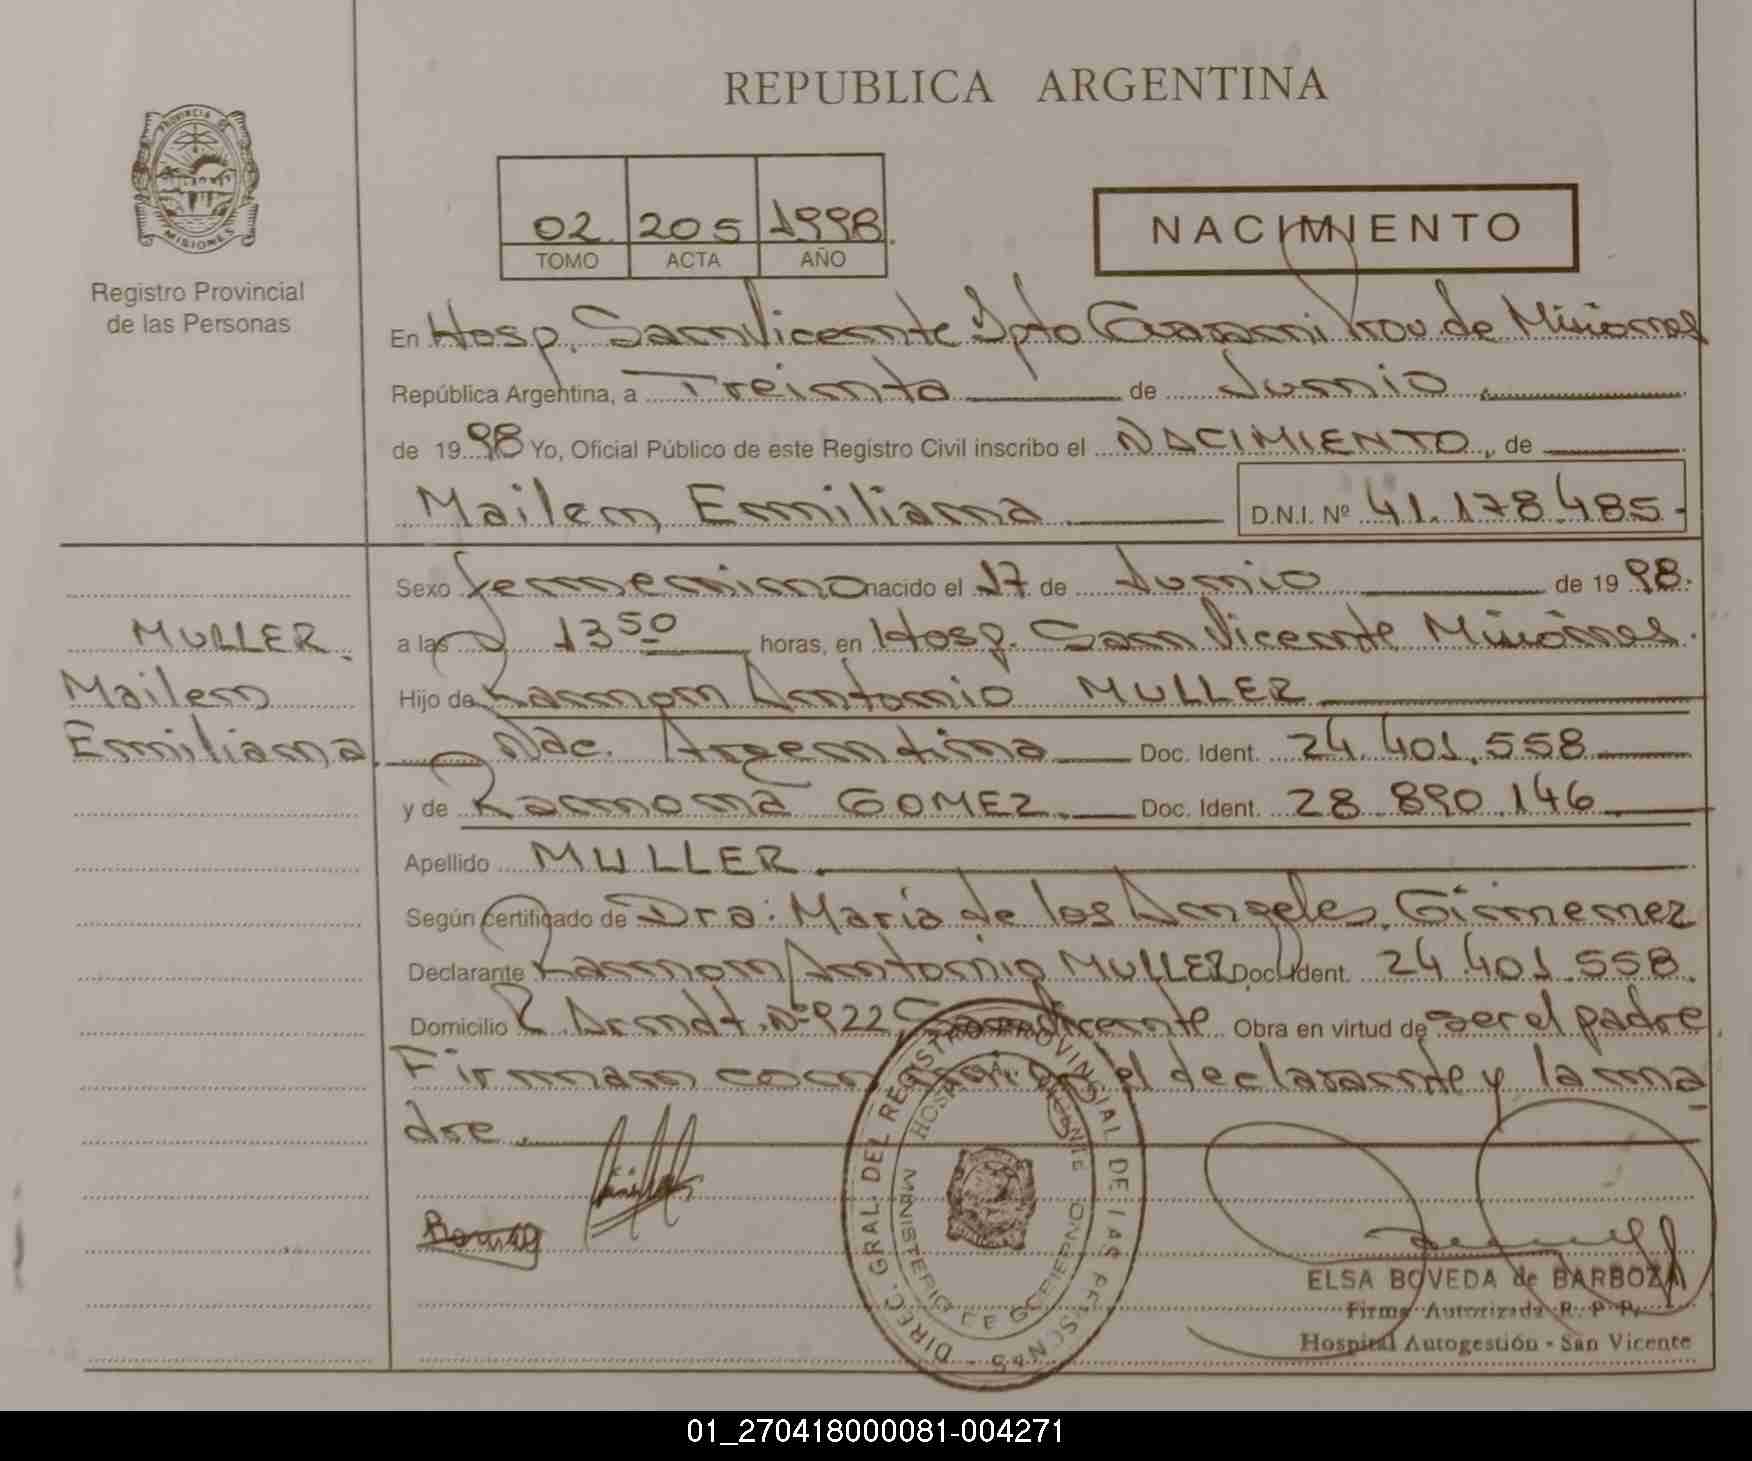 REPUBLICA ARGENTINA
PROVINCIA DE MISIONES
Registro Provincial
de las Personas
02 205 1998
TOMO ACTA AÑO
NACIMIENTO
En Hosp. San Vicente Dpto Guarani Prov. de Misiones
República Argentina, a Treinta de Junio
de 1998 Yo, Oficial Público de este Registro Civil inscribo el NACIMIENTO, de
Mailen Emiliana D.N.I. Nº 41.178.485
MULLER
Mailen
Emiliana
Sexo femenino nacido el 17 de Junio de 1998.
a las 13 50 horas, en Hosp. San Vicente Misiones.
Hijo de Ramon Antonio MULLER
Nac. Argentina Doc. Ident. 24.401.558
y de Ramona GOMEZ Doc. Ident. 28 890.146
Apellido MULLER
Según certificado de Dra: Maria de los Angeles Gimenez
Declarante Ramon Antonio MULLER Doc. Ident. 24.401.558.
Domicilio Arndt Nº 922 San Vicente Obra en virtud de ser el padre
Firman el declarante y la ma
dre.
DIREC. GRAL. DEL REGISTRO PROVINSIAL DE LAS PERSONAS
HOSPITAL VICENTE
MINISTERIO DE GOBIERNO
ELSA BOVEDA de BARBOZA
Firma Autorizada R. P. P.
Hospital Autogestión - San Vicente
01_270418000081-004271